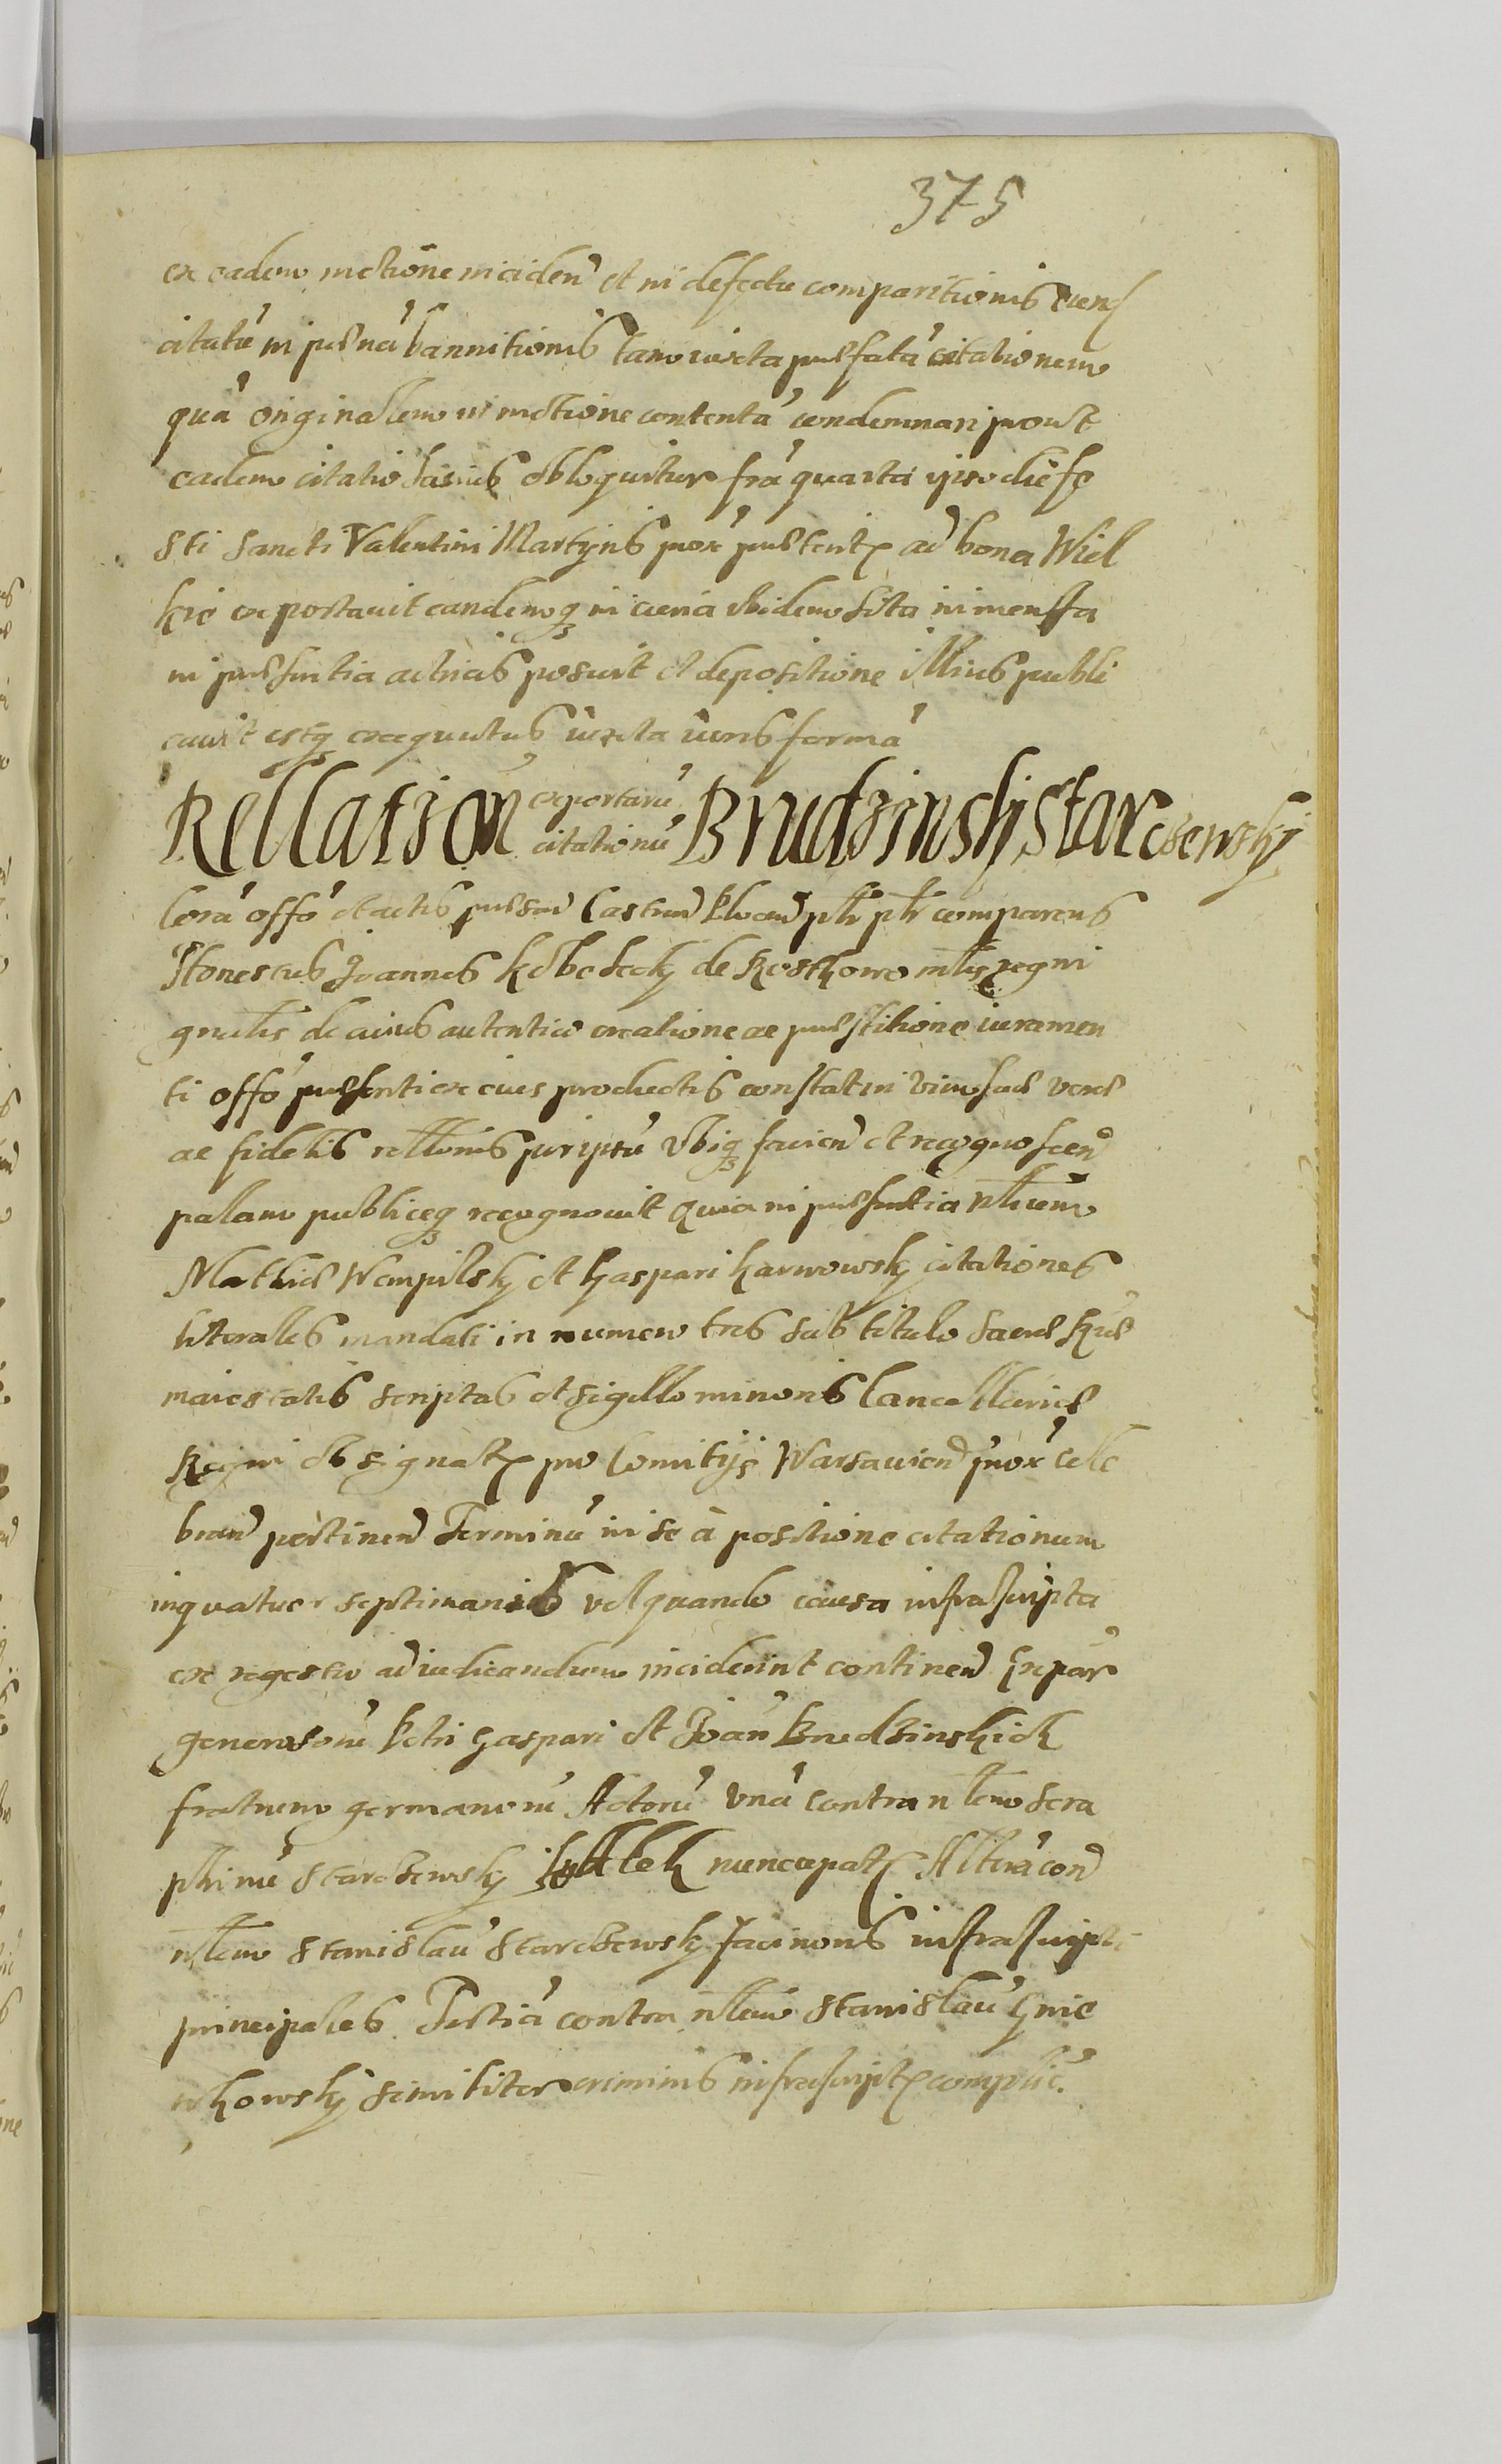 375
ex eadem inctione inciden̄ et in defectu comparitionis eund
citatū in poenā bannitionis tam iuxta praefatā citationem
quā originalem in inctione contentā condemnari prout
eadem citatio latius obloquitur fra quarta ipso die fe
sti Sancti Valentini Martyris prox praeterit ad bona Wiel
kie exportavit eandemq in curia ibidem sita in mensa
in praesentia actricis posuit et depositione illius publi
cavit estq exequutus iuxta iuris formā
Rellation exportarū citationū Brudzinskj Starczewskj
Corā offō et actis praesen Castren Plocen pnr comparens
Honestus Joannes Kobosecky de Rosthowo mls regni
gnalis de cuius autentica creatione ac praestitione iuramen
ti offō praesenti ex eius productis constat in vim suae verae
ac fidelis rellonis scriptū vbiq facien et recognoscen
palam publiceq recognovit quia in praesentia nlium
Mathiae Wempilsky et Gaspari Karwowsky citationes
literales mandati in numero tres sub titulo Sacrae Rae
maiestatis scriptas et sigillo minoris Cancellariae
Regni obsignat pro Comitijs Warsavien prox cele
bran pertinen Terminū in se à positione citationum
in quatuor septimanis vel quando causa infrascripta
ex regestro ad iudicandum inciderint continen Ex par
generosorū Petri Gaspari et Joan Brudzinskich
fratrum germanorū Actorū Unā contra nlem Sera
phinū Starczewsky nuncupat Alterā con
nlem Stanislaū Starczewsky facinoris infrascript
principales Tertiā contra nlem Stanislaū Gnie
wkowsky similiter criminis infrascript complic